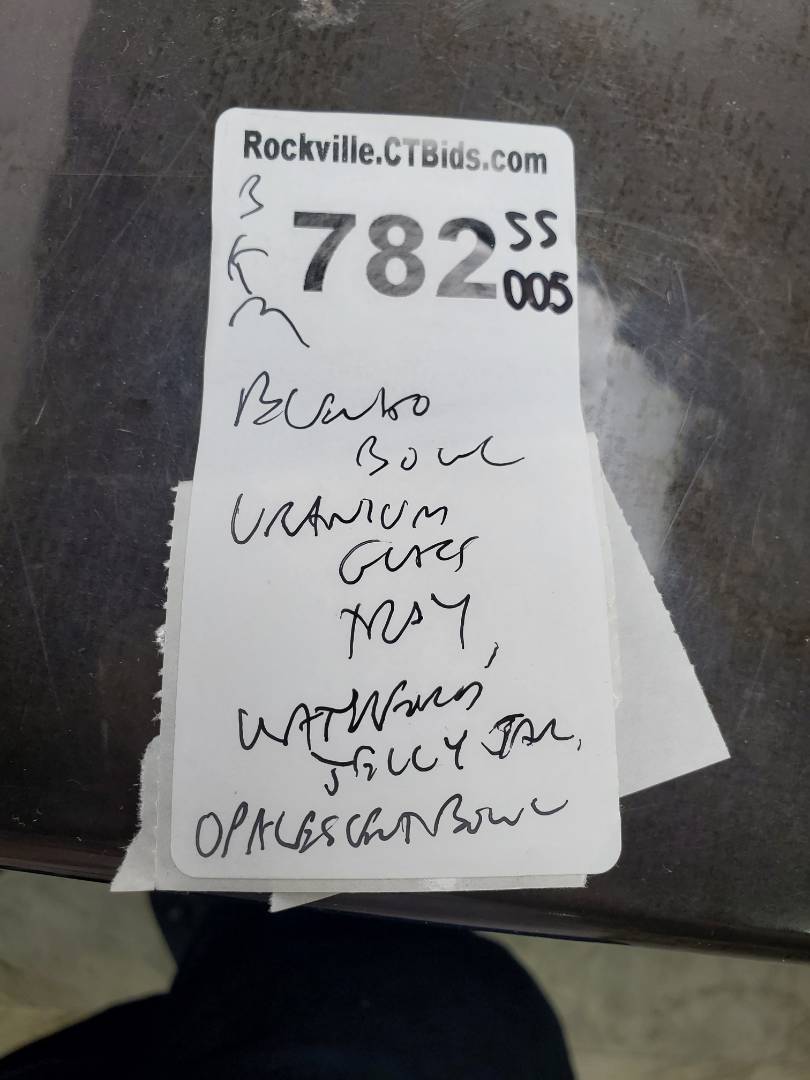 Rockville.CTBids.com
B
K
M
782
SS
005
BLENKO
BOWL
URANIUM
GLASS
TRAY,
WATERFORD
JELLY JAR,
OPALESCENT BOWL